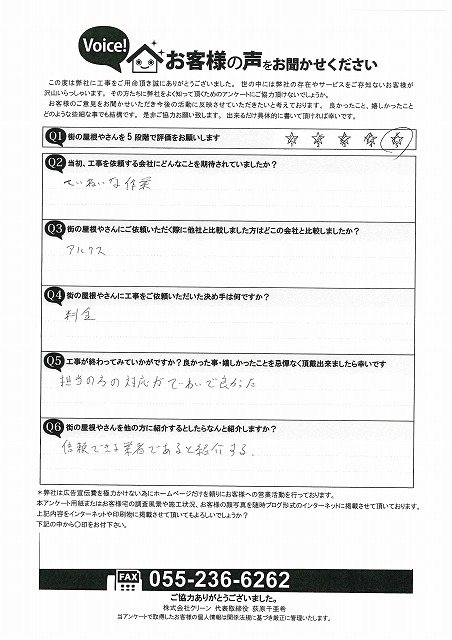 Voice! お客様の声をお聞かせください
この度は弊社に工事をご用命頂き誠にありがとうございました。 世の中には弊社の存在やサービスをご存知ないお客様が
沢山いらっしゃいます。 その方たちに弊社をよく知って頂くためのアンケートにご協力頂けないでしょうか。
お客様のご意見をお聞かせいただき今後の活動に反映させていただきたいと考えております。 良かったこと、嬉しかったこと
どのような些細な事でも結構です。 是非ご協力お願い致します。 出来るだけ具体的に書いて頂ければ幸いです。
Q1 街の屋根やさんを5段階で評価をお願いします ☆ ☆ ☆ ☆ ☆
Q2 当初、工事を依頼する会社にどんなことを期待されていましたか?
ていねいな作業
Q3 街の屋根やさんにご依頼いただく際に他社と比較しました方はどこの会社と比較しましたか?
アルクス
Q4 街の屋根やさんに工事をご依頼いただいた決め手は何ですか?
料金
Q5 工事が終わってみていかがですか?良かった事・嬉しかったことを忌憚なく頂戴出来ましたら幸いです
担当の方の対応がていねいで良かった
Q6 街の屋根やさんを他の方に紹介するとしたらなんと紹介しますか?
信頼できる業者であると紹介する。
*弊社は広告宣伝費を極力かけない為にホームページだけを頼りにお客様への営業活動を行っております。
本アンケート用紙またはお客様宅の調査風景や施工状況、お客様の顔写真を随時ブログ形式のインターネットに掲載させて頂いております。
上記内容をインターネットや印刷物に掲載させて頂いてもよろしいでしょうか?
下記の中から○印をお付下さい。
FAX 055-236-6262
ご協力ありがとうございました。
株式会社クリーン 代表取締役 荻原千亜希
当アンケートで取得したお客様の個人情報は関係法規に基づき厳正に管理いたします。